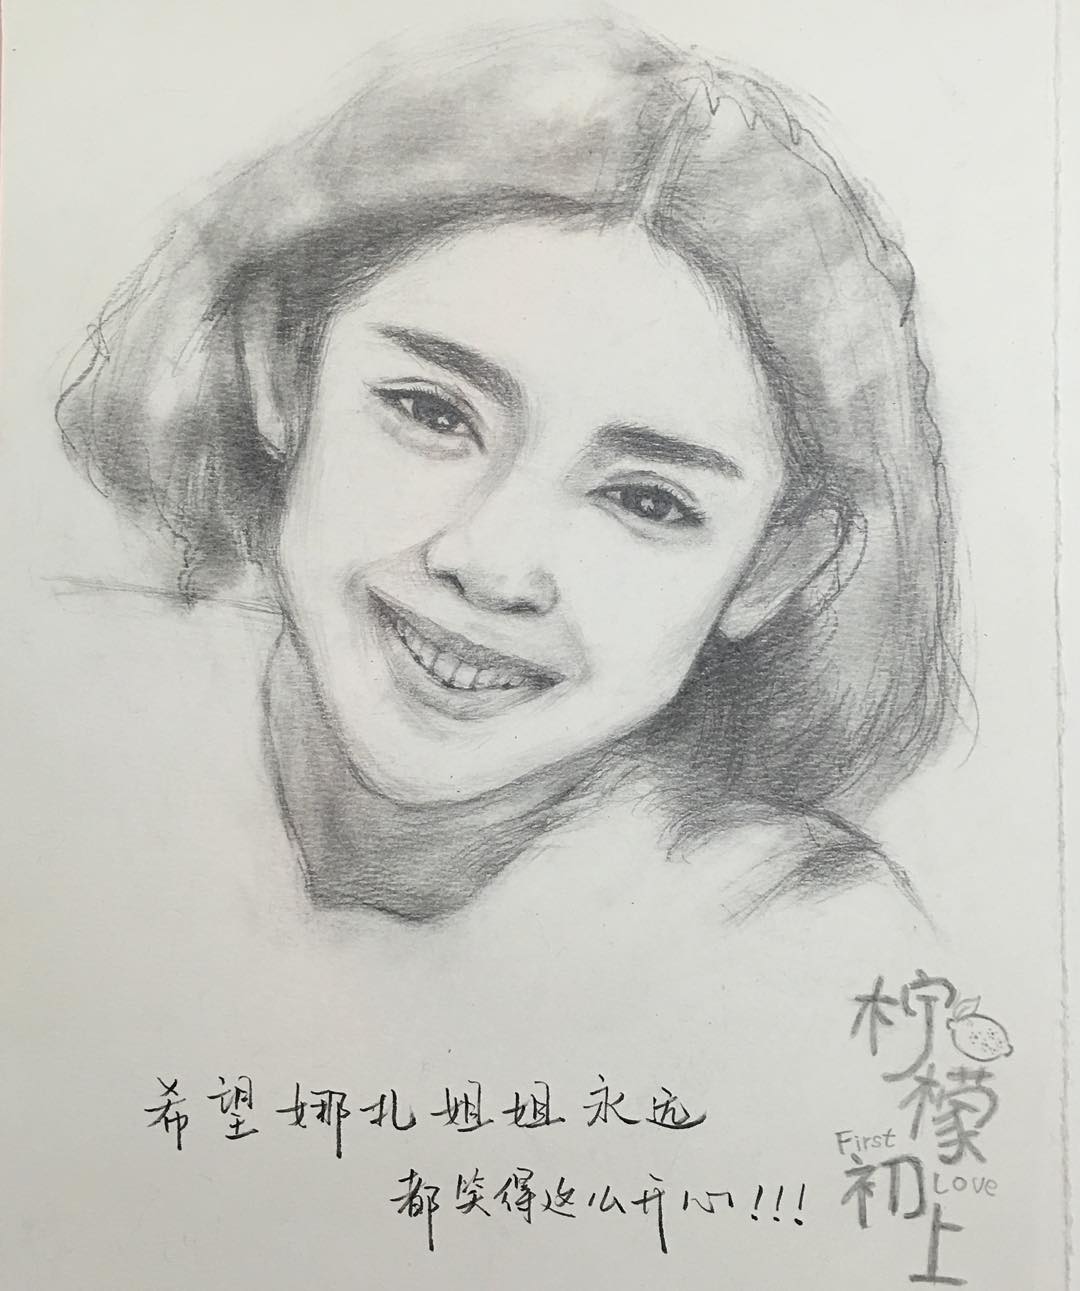 希望娜扎姐姐永远
都笑得这么开心!!!
柠檬
初上
First
Love